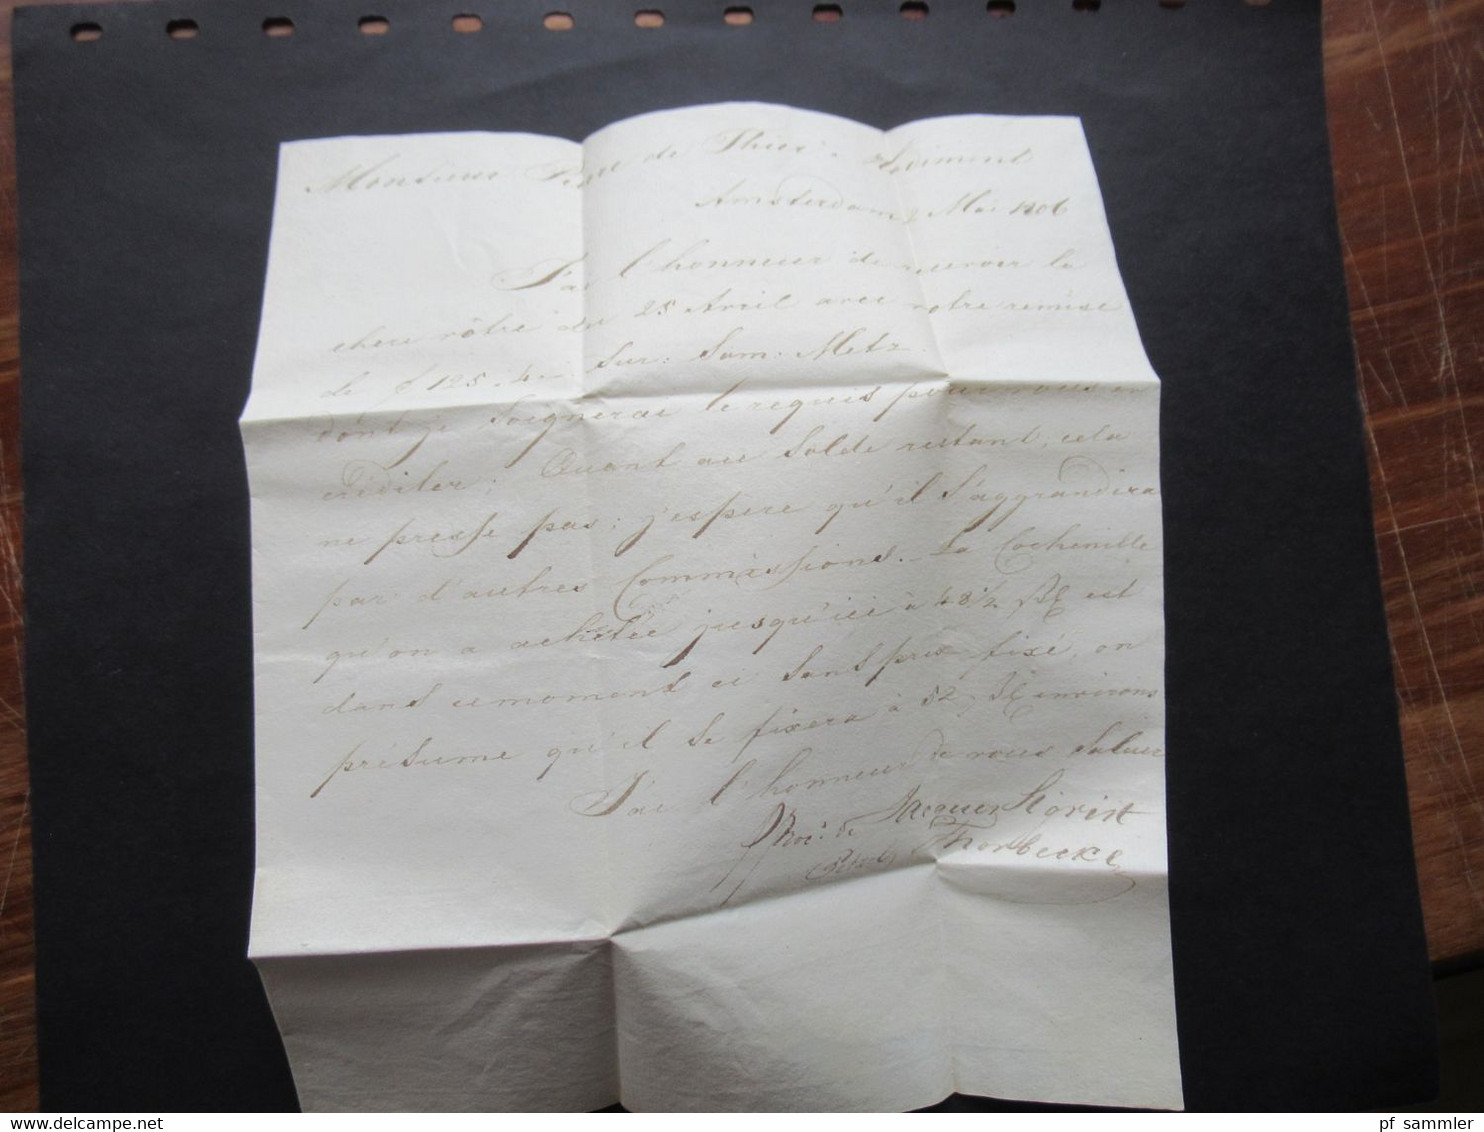 Monsieur de Thier
Amsterdam Mai 1806
J'ai l'honneur de recevoir la
chere vôtre du 25 Avril avec votre remise
de f 125.4 sur: Sam: Metz
dont je soignerai le requis pour vous en
créditer; Quant au Solde restant, cela
ne presse pas; j'espere qu'il s'aggrandira
par d'autres Commissions. La Cochenille
qu'on a achetée jusqu'ici à 48½ est
dans ce moment ci sans prix fixé, on
présume qu'il se fixera à 52 environs
J'ai l'honneur de vous saluer
de Jacques Sigrist
Thorbecke
pf_sammler